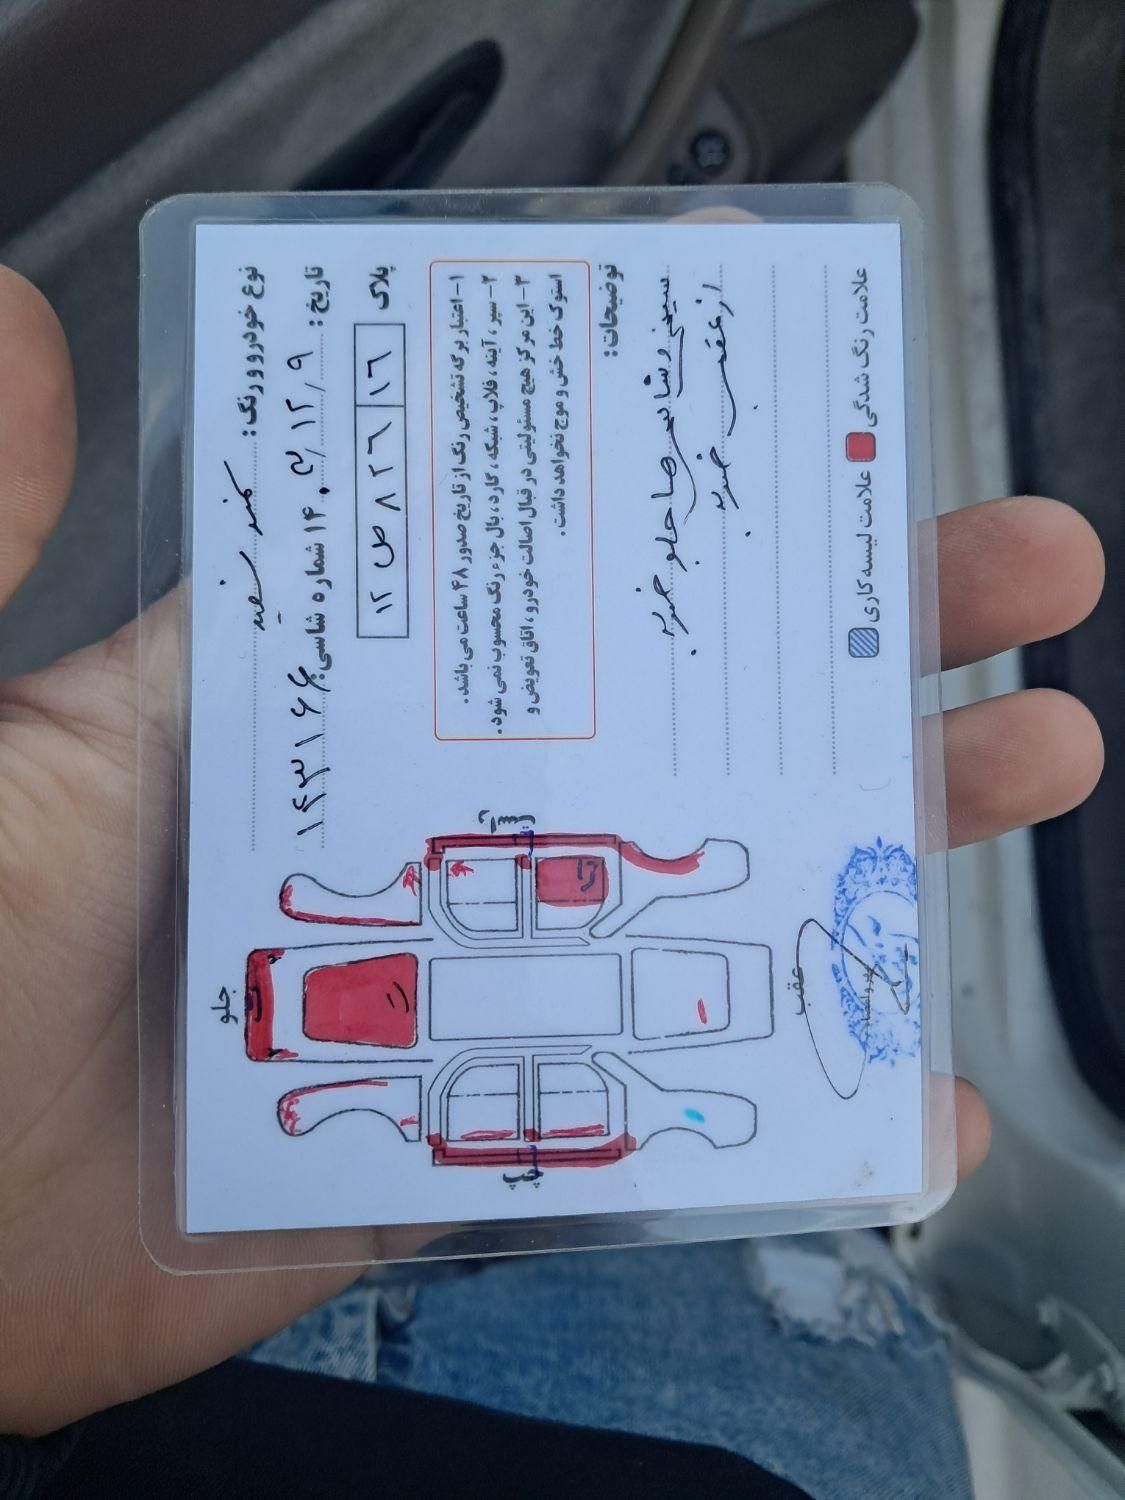 نوع خودرو و رنگ: سمند سفید
تاریخ: ۱۴۰۳/۱۲/۹ شماره شاسی: ۱۴۳۱۶۶
پلاک
۱۲ ص ۸۲۶ ۱۶
۱- اعتبار برگه تشخیص رنگ از تاریخ صدور ۴۸ ساعت می باشد.
۲- سپر، آینه، قلاپ، شبکه، گارد، بال جزء رنگ محسوب نمی شود.
۳- این مرکز هیچ مسئولیتی در قبال اصالت خودرو، اتاق تعویض و
استوک خط خش و موج نخواهد داشت.
توضیحات:
سینی و شاسی‌ها جلو ضربه
از عقب ضربه
علامت رنگ شدگی
علامت لیسه کاری
جلو
راست
چپ
عقب